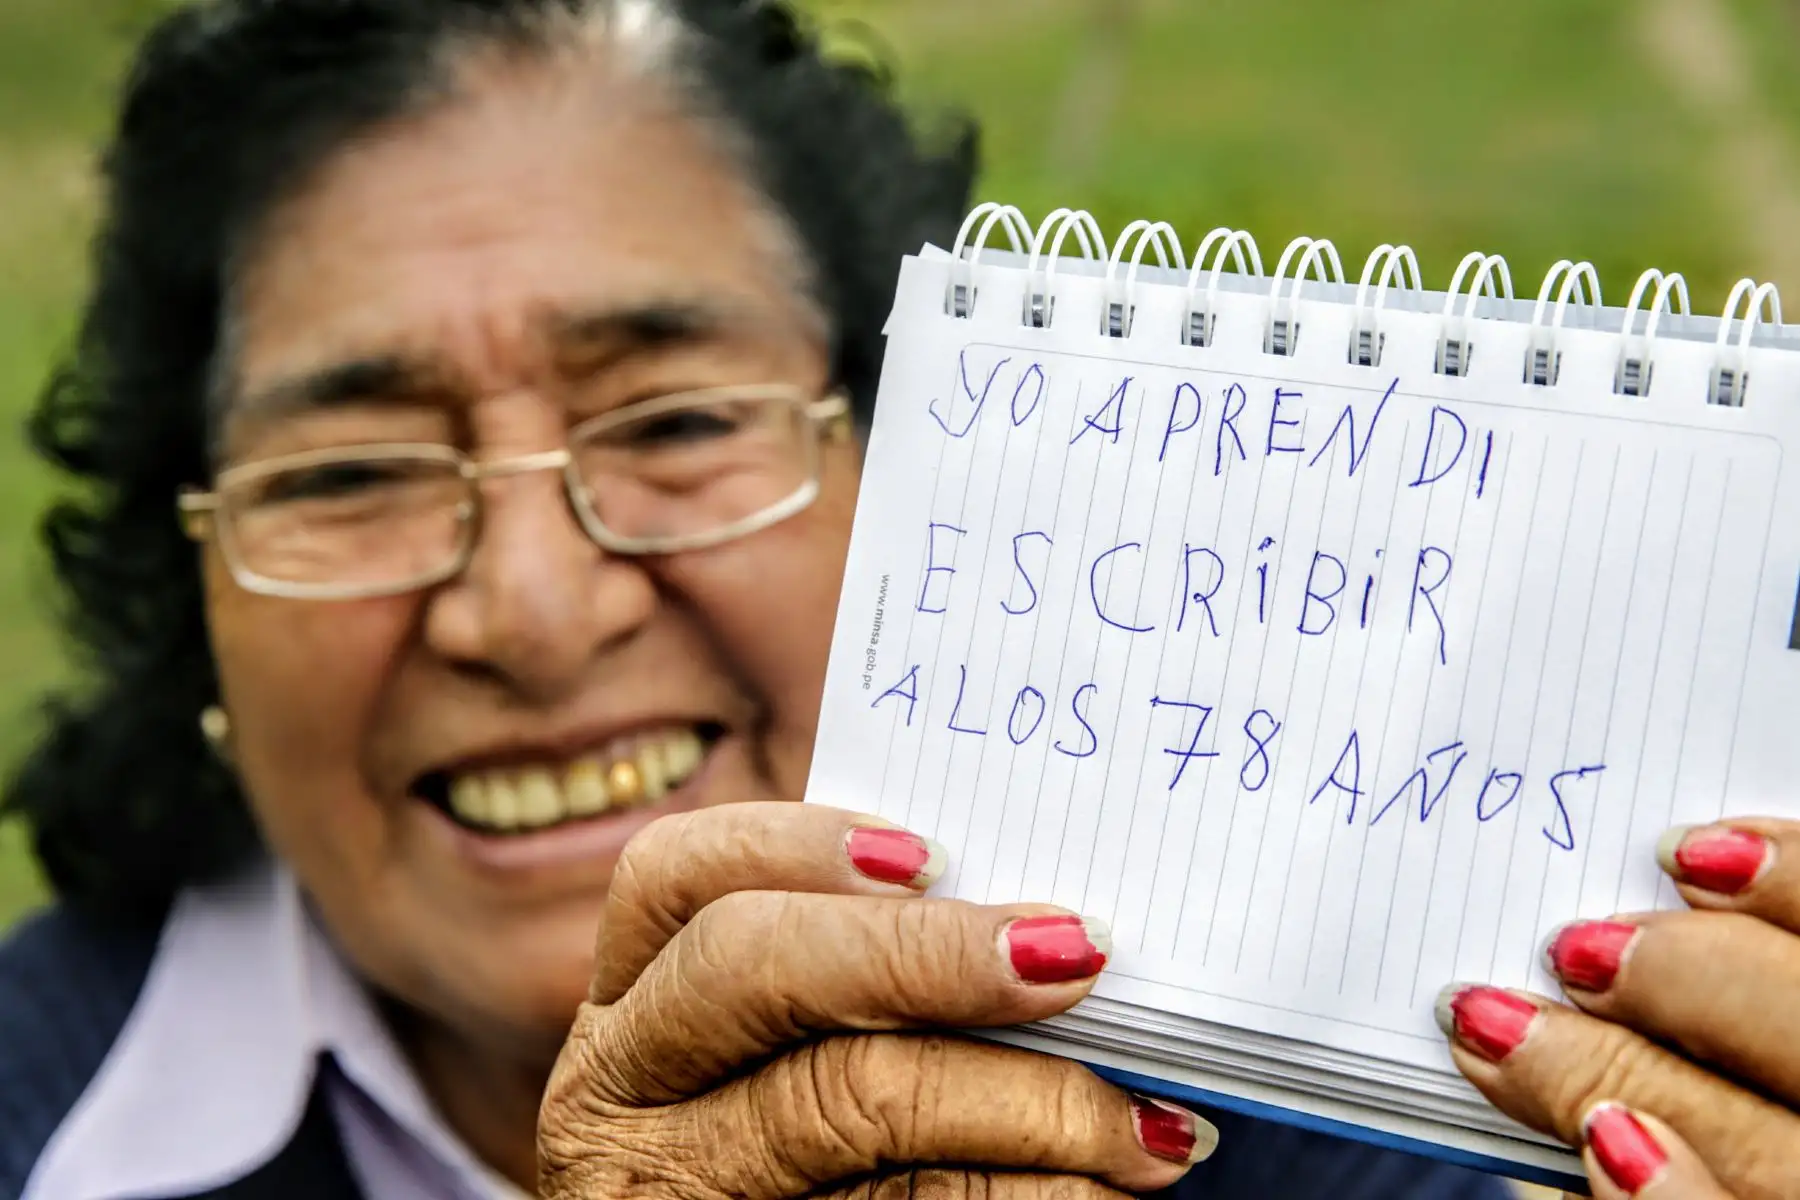 YO APRENDI
ESCRiBiR
A LOS 78 AÑOS
www.minsa.gob.pe